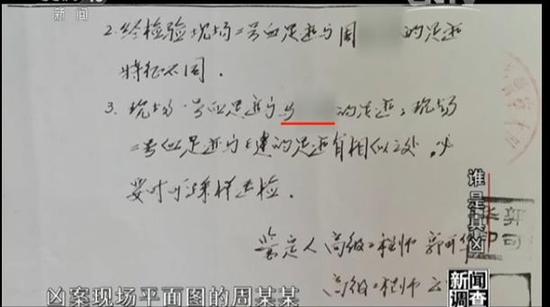 新闻
2.经检验现场二号血足迹与周
的足迹
特征不同.
3.现场一号血足迹与
的足迹、现场
二号血足迹与王建的足迹有相似之处,必
要时可采样送检.
谁是真凶
鉴定人 高级工程师 郭
高级工程师
凶案现场平面图的周某某
新闻
调查